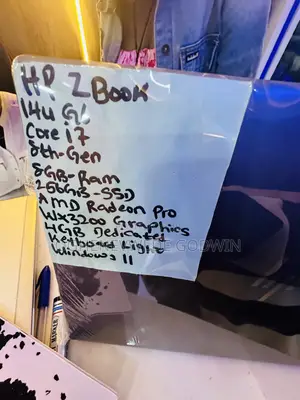 HP ZBOOK
14U G6
Core i7
8th-Gen
8GB-Ram
256GB-SSD
AMD Radeon Pro
WX3200 Graphics
4GB Dedicated
Keyboard Light
Windows 11
GODWIN